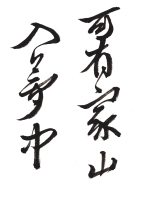 可有家山
入夢中